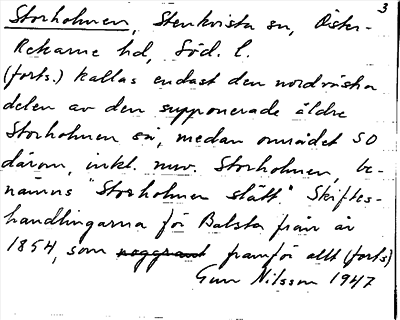 3
Storholmen, Stenkvista sn, Öster-
Rekarne hd, Söd. l.
(forts.) kallas endast den nordvästra
delen av den supponerade äldre
Storholmen så, medan området SO
därom, inkl. nuv. Storholmen, be-
nämns "Storholmen slätt" Skiftes-
handlingarna för Balsta från år
1854, som noggrant framför allt (forts)
Gun Nilsson 1947